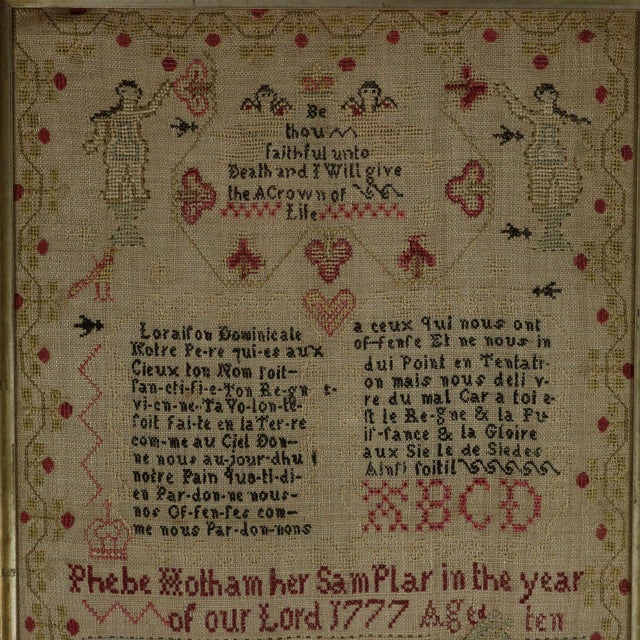 Be
thou
faithful unto
Death and I Will give
the A Crown of
Life
Loraison Dominicale
Notre Pe-re qui-es aux
Cieux ton Nom soit-
san-cti-fi-e-Ton Re-gn t-
vi-en-ne-Ta Vo-lon-te-
soit fai-te en la Ter-re
com-me au Ciel Don-
ne nous au-jour-dhu i
notre Pain Quo-ti-di-
en Par-don-ne nous-
nos Of-fen-ses com-
me nous Par-don-nons
a ceux qui nous ont
of-fense Et ne nous in
dui Point en Tentati-
on mais nous deli v-
re du mal Car a toi e-
st le Re-gne & la Pu
is-sance & la Gloire
aux Sie le de Siedes
Ainsi soitil
ABCD
Phebe Hotham her SamPlar in the year
of our Lord 1777 Aged ten